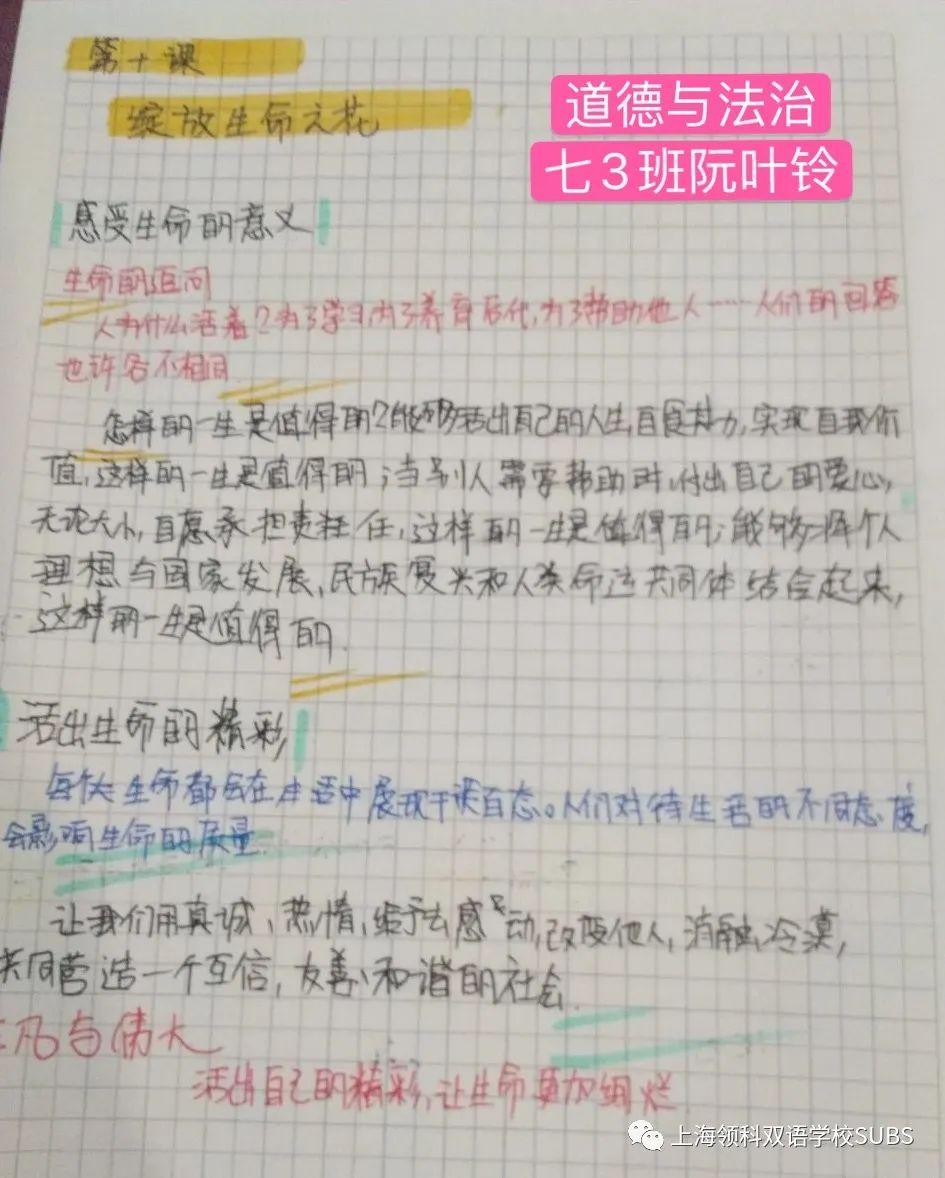 第十课
绽放生命之花
道德与法治
七3班阮叶铃
感受生命的意义
生命的追问
人为什么活着?为了学习,为了养育后代,为了帮助他人……人们的回答
也许各不相同
怎样的一生是值得的?能够活出自己的人生,自食其力,实现自我价
值,这样的一生是值得的;当别人需要帮助时,付出自己的爱心,
无论大小,自愿承担责任,这样的一生是值得的;能够将个人
理想与国家发展、民族复兴和人类命运共同体结合起来,
这样的一生是值得的.
活出生命的精彩
每个生命都会在生活中展现千姿百态。人们对待生活的不同态度,
会影响生命的质量.
让我们用真诚、热情、给予去感动,改变他人,消融冷漠,
共同营造一个互信、友善、和谐的社会.
凡与伟大
活出自己的精彩,让生命更加绚烂
上海领科双语学校SUBS